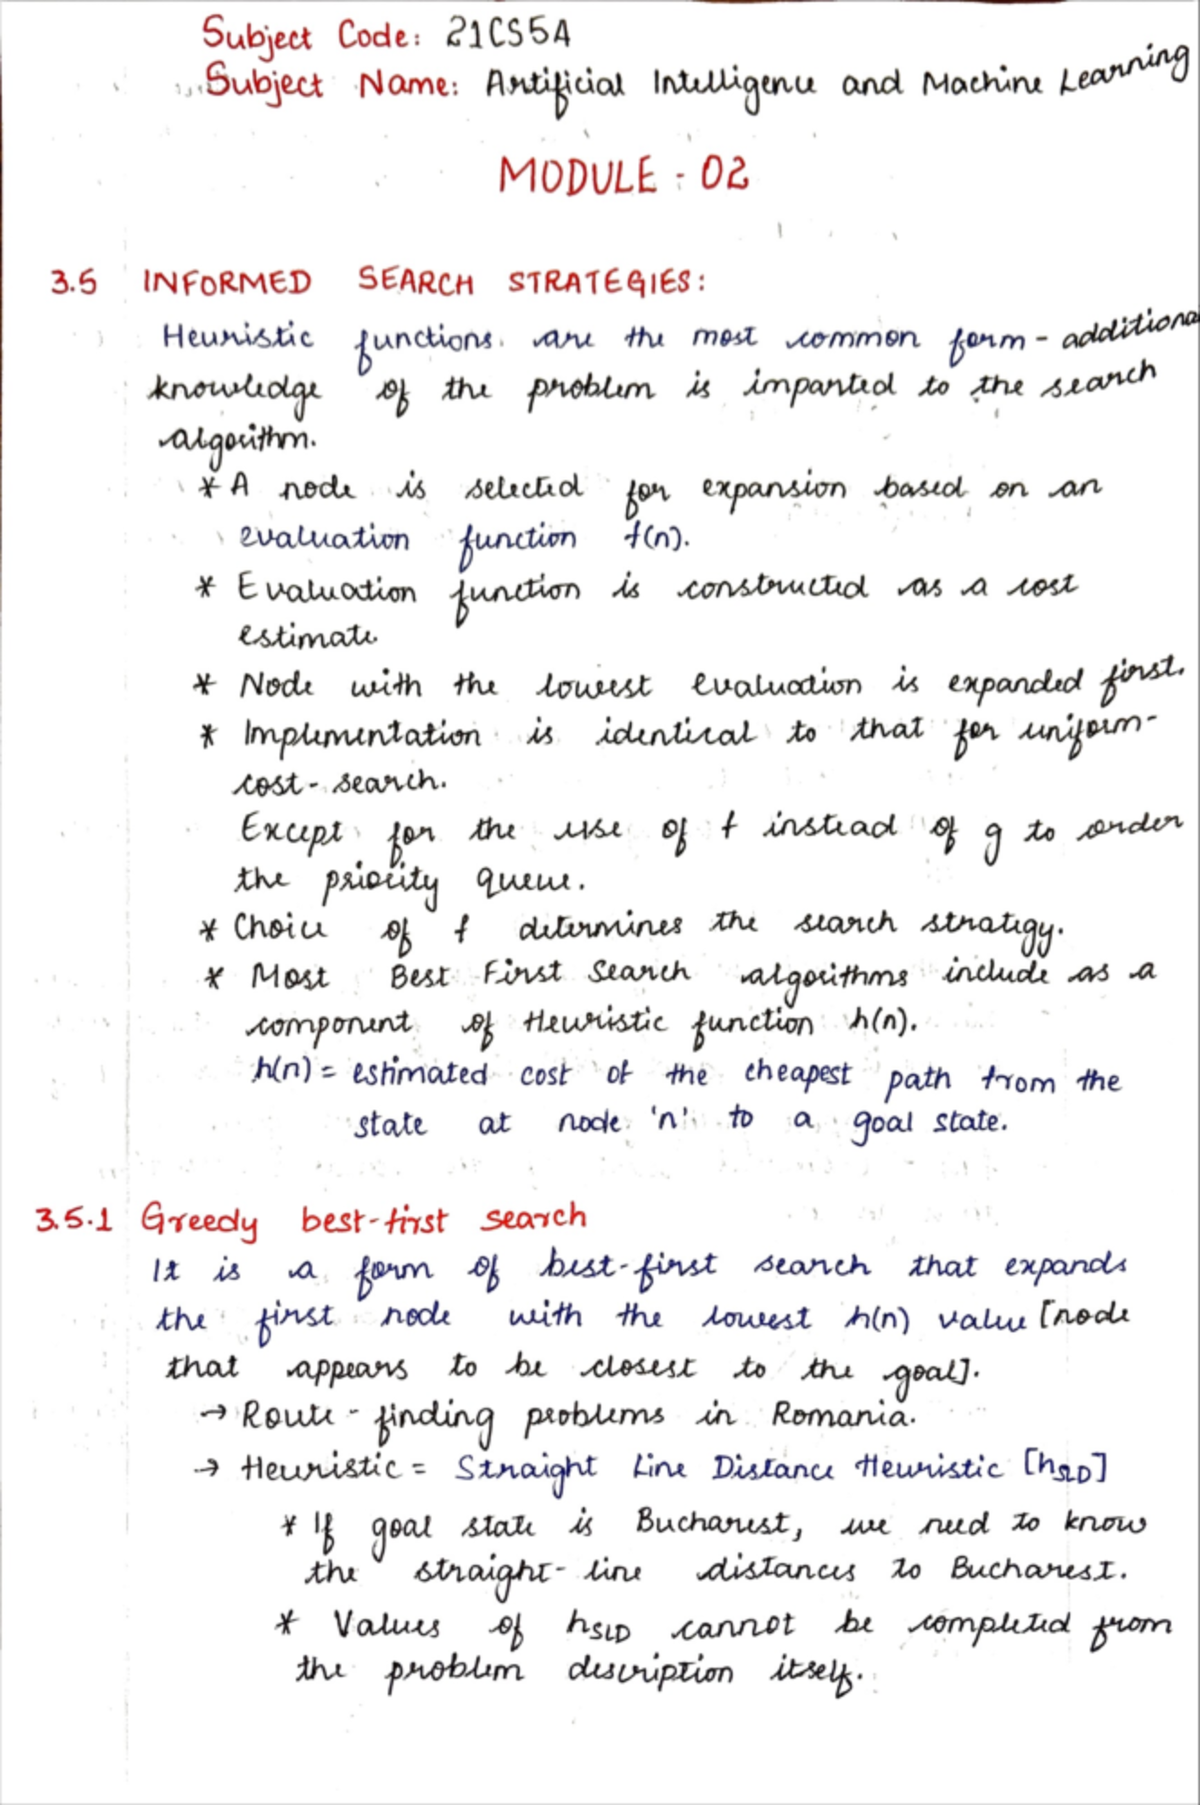 Subject Code: 21CS5A
Subject Name: Artificial Intelligence and Machine Learning
MODULE - 02
3.5 INFORMED SEARCH STRATEGIES:
Heuristic functions are the most common form - additional
knowledge of the problem is imparted to the search
algorithm.
* A node is selected for expansion based on an
evaluation function f(n).
* Evaluation function is constructed as a cost
estimate.
* Node with the lowest evaluation is expanded first.
* Implementation is identical to that for uniform-
cost-search.
Except for the use of f instead of g to order
the priority queue.
* Choice of f determines the search strategy.
* Most Best First Search algorithms include as a
component of Heuristic function h(n).
h(n) = estimated cost of the cheapest path from the
state at node 'n' to a goal state.
3.5.1 Greedy best-first search
It is a form of best-first search that expands
the first node with the lowest h(n) value [node
that appears to be closest to the goal].
→ Route - finding problems in Romania.
→ Heuristic = Straight Line Distance Heuristic [hSLD]
* If goal state is Bucharest, we need to know
the straight-line distances to Bucharest.
* Values of hSLD cannot be completed from
the problem description itself.